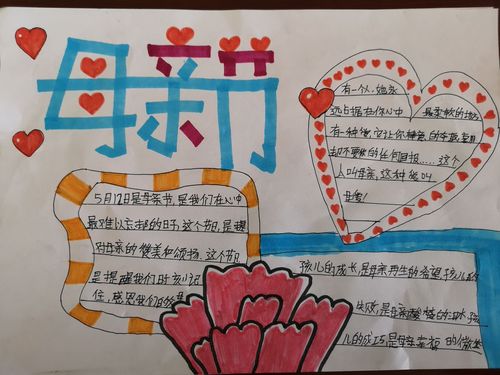 母亲节
有一个人,她永
远占据在你心中 最柔软的地方
有一种爱,它让你 的
却不要你的任何回报……这个
人叫母亲,这种爱叫
母爱!
5月12日是母亲节,是我们在心中
最难以忘却的日子,这个节日,是提
对母亲的赞美和颂扬.这个节日
是提醒我们时刻记
住,感恩我们的
孩儿的成长,是母亲再生的希望,孩儿的
失败,是母亲 的泪水,孩
儿的成功,是母亲幸福的微笑